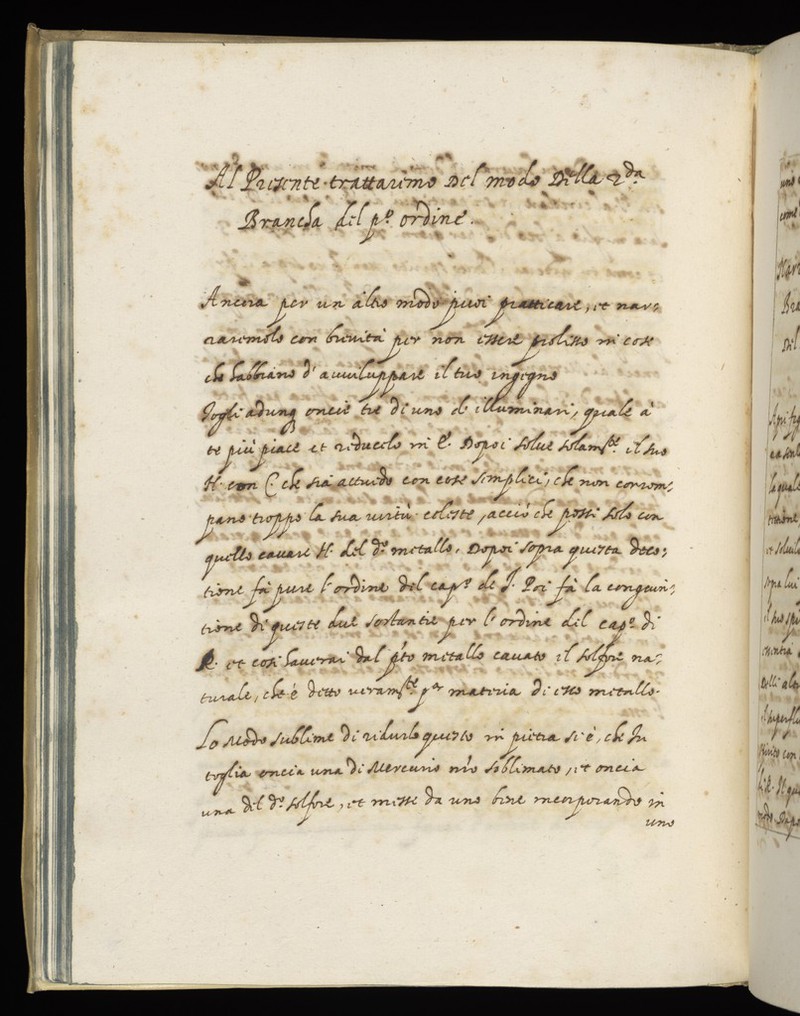 Al Presente trattaremo Del modo Della 2da
Brancha del po. ordine.
Ancora per un altro modo puoi pratticare, et nar=
raremolo con brevità per non essere prolisso in cose
che habbiano d'avviluppare il tuo ingegno
Togli adunq oncie tre di uno de illuminari, quale à
te più piace et riducelo in E. Dopoi solve solamte. il suo
H. con C. che sia actuido con cose simplici, che non corrom=
pano troppo la sua virtù celeste, acciò che possi solo con
quello cavare H. del do. metallo. Dopoi sopra questa deco=
tione fà pure l'ordine del capo. de J. Poi fà la congiun=
tione di queste due sostantie per l'ordine del capo. di
R. et cosi haverai dal pto metallo cavato il solfore na=
turale, che è detto veramte. per materia di esso metallo.
Lo Modo sublime di ridurlo questo in pietra si è, che tu
toglia oncia una di Mercurio nro sollimato, et oncia
una del do. solfore, et misse da uno bene incorporando in
uno